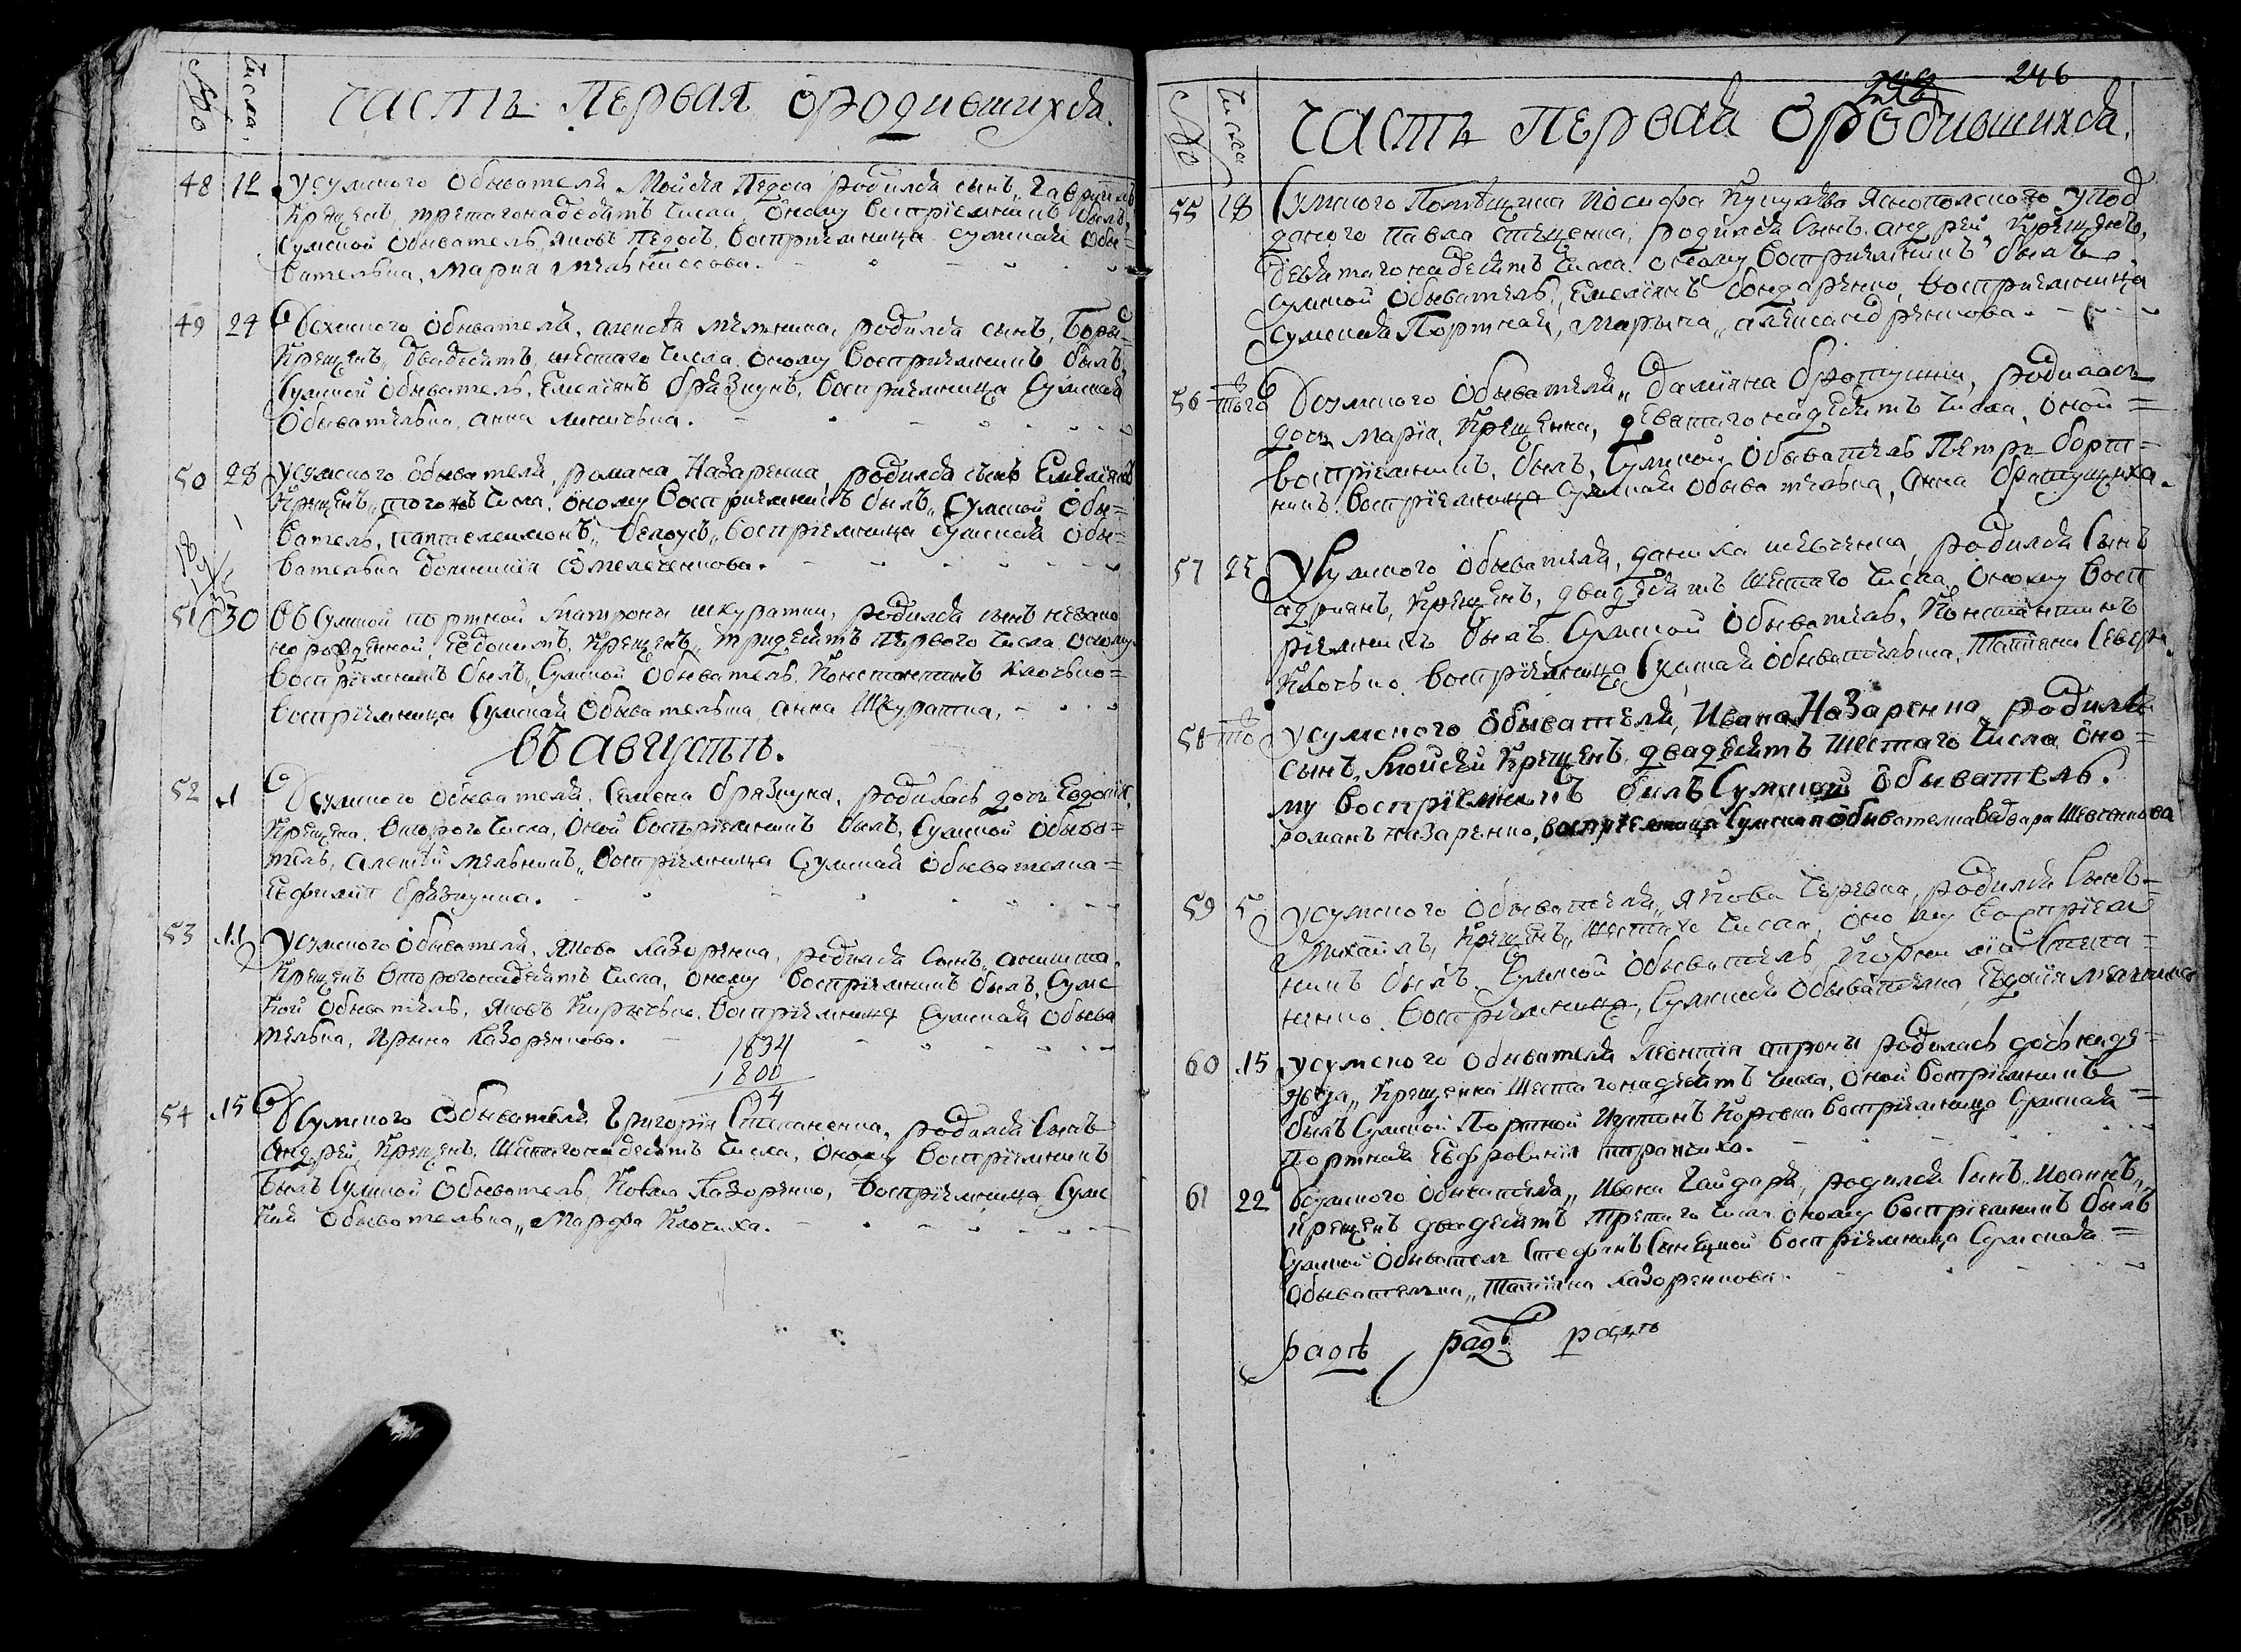 №
Числа.
Часть Первая о родившихся.
48 12 У сумского обывателя Мойсея Педоса родился сынъ, Гавріилъ
Крещенъ, третагонадесять числа, оному воспріемникъ былъ,
Сумской обыватель, Яковъ Педосъ, воспріемница сумская обы=
вателька, Мария Мельникова.
49 24 У сумского обывателя, алексея мельника, родился сынъ, Бори
Крещенъ, двадесять, шестаго числа, оному восприемникъ былъ,
Сумской обыватель, Емелиянъ бразнунъ, восприемница Сумская
Обывателька, анна
50 28 У сумского обывателя, романа Назаренка, родился сынъ Емелиянъ
Крещенъ, того жъ числа, оному восприемникъ былъ, Сумской обы=
ватель, пантелеимонъ, белоусъ, воспріемница Сумская обы=
вателька Домникия
51 30 въ Сумской портной Матроны шкуратки, родился сынъ незако
норожденной, Евдокимъ, Крещенъ, тридесять первого числа, оному
воспріемникъ былъ, Сумской обыватель, Константинъ Клочько=
воспріемница Сумская обывателька анна Шкуратка,
въ августѣ.
52 1 У сумского обывателя, Семена бразнуна, родилась дочь Евдокия,
Крещена, второго числа, оной воспріемникъ былъ, Сумской обыва=
тель, алексей мельникъ, воспріемница Сумская обывателка=
Евфимия бразнунка.
53 11 У сумского обывателя, Якова Лазоренка, родился сынъ, аникита,
Крещенъ второгонадесять числа, оному воспріемникъ былъ, Сумс
кой обыватель, Яковъ воспріемница Сумская обыва
телька, Ирина Лазоренкова.
1834
1800
34
54 15 У сумского обывателя Григорія Степаненка, родился сынъ
андрей, Крещенъ, Шестагонадесять числа, оному воспріемникъ
былъ Сумской обыватель, Павло Лазоренко, воспріемница Сумс
кая обывателька, Марфа Клочиха.
246
№
Числа
Часть Первая о родившихся.
55 18 Сумского Помѣщика Иосифа Яснопольского у под
даного Павла Стеценка, родился сынъ андрей, Крещенъ,
девятагонадесять числа, оному восприемникъ былъ
сумской обыватель, Емелиянъ бондаренко, восприемница
сумская Портная, Марына, александренкова.
56 того У сумского обывателя, Дамияна братушки, родилась
дочь Марія, Крещенна, девятагонадесять числа, оной=
воспріемникъ, былъ, Сумской обыватель Петръ борт=
никъ воспріемница Сумская обывателька, анна братущиха.
57 25 У сумского обывателя, данила шевченка, родился сынъ
адриянъ, Крещенъ, двадесять шестаго числа, оному восп
ріемникъ былъ Сумской обыватель, Константинъ
Клочько воспріемница Сумская обывателька, Татияна
58 то У сумского обывателя, Ивана Назаренка родился
сынъ, Мойсей Крещенъ, двадесять шестаго числа, оно=
му воспріемникъ былъ Сумской обыватель,
романъ назаренко, воспріемница Сумская обывателка Варвара Шевченкова
59 5 У сумского обывателя, Якова родился сынъ=
Михаилъ, Крещенъ, шестаго числа, оному воспріем
никъ былъ, Сумской обыватель, Степа=
ненко, воспріемница, Сумская обывателка Евдокия
60 15 У сумского обывателя Леонтія родилась дочь наде=
жда, Крещенна шестагонадесять числа, оной воспріемникъ
былъ Сумской Портной Иустинъ воспріемница Сумская=
Портная Евфросиния
61 22 У сумского обывателя, Ивана Гайдара, родился сынъ Иоаннъ,
крещенъ двадесять третяго числа оному воспріемникъ былъ
Сумской обыватель Стефанъ воспріемница Сумская=
Обывателка, Татияна Лазоренкова.